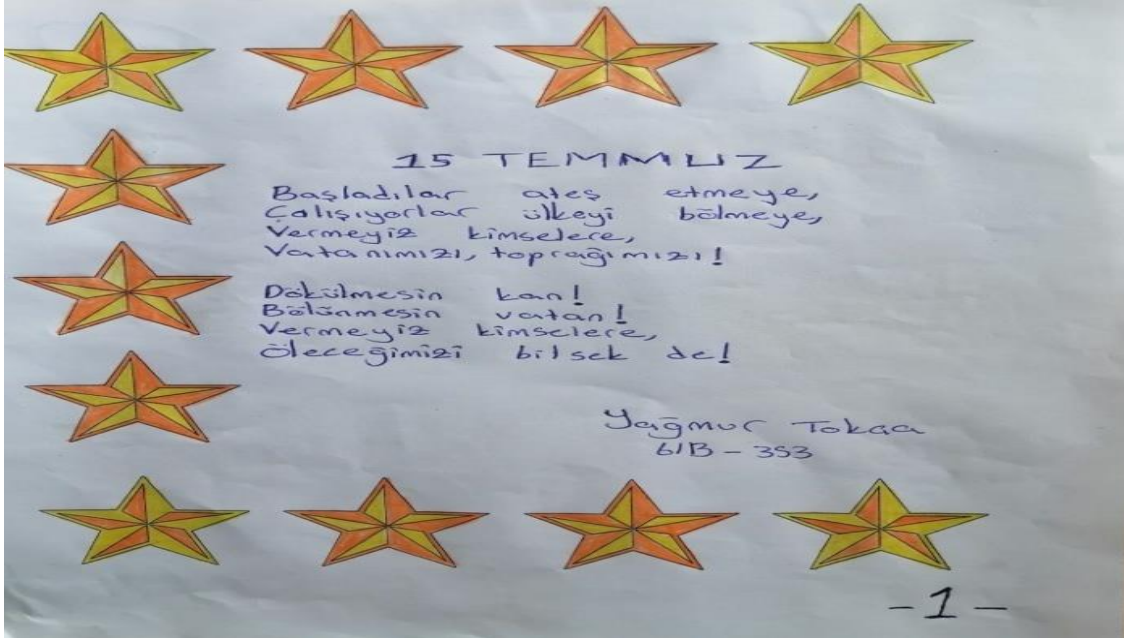 15 TEMMUZ
Başladılar ateş etmeye,
Çalışıyorlar ülkeyi bölmeye,
Vermeyiz kimselere,
Vatanımızı, toprağımızı!
Dökülmesin kan!
Bölünmesin vatan!
Vermeyiz kimselere,
Öleceğimizi bilsek de!
Yağmur Tokaa
6/B - 353
-1-